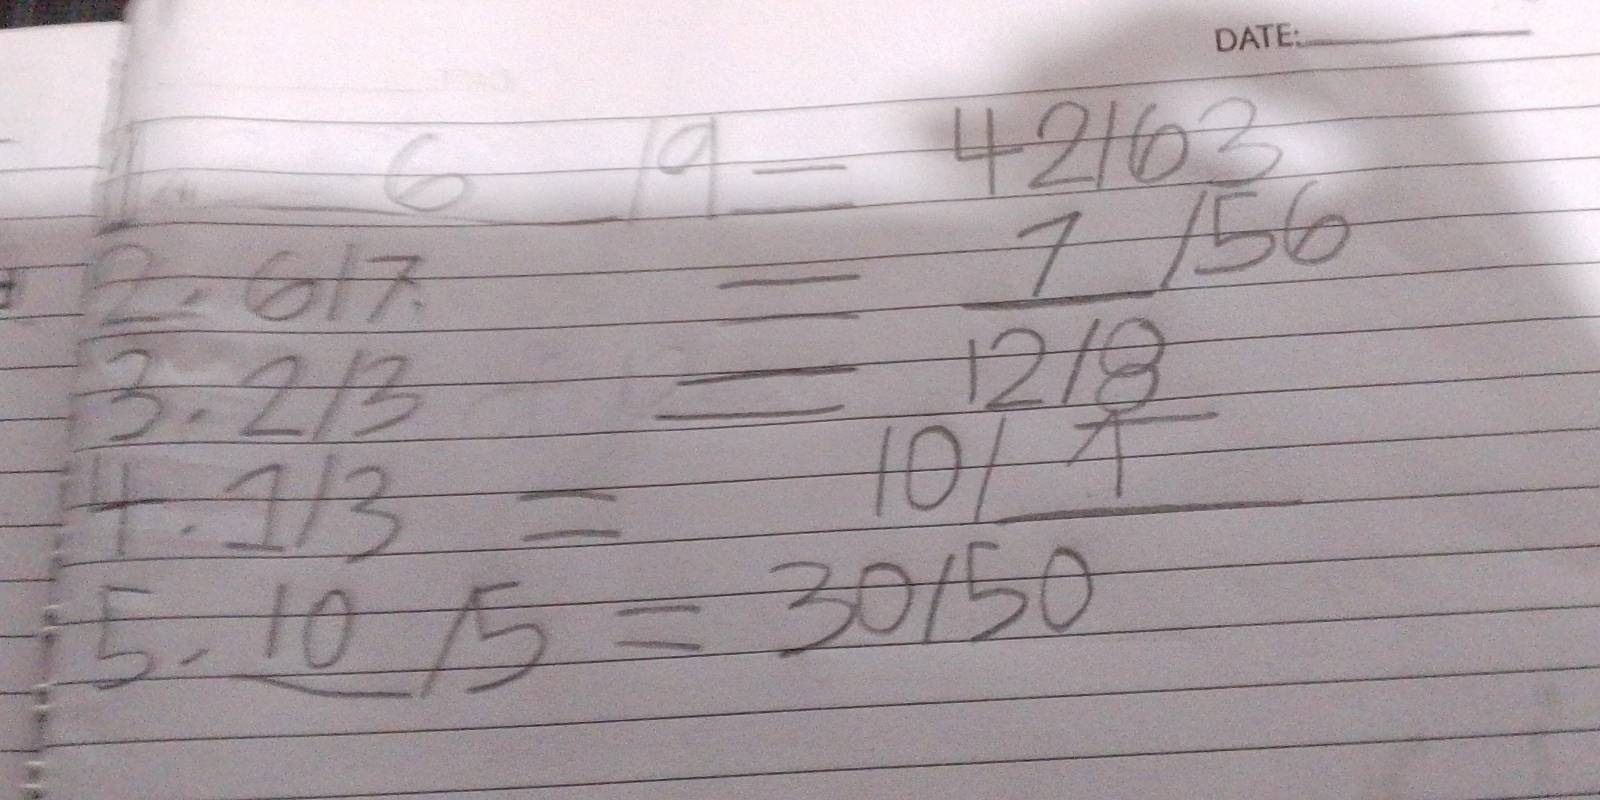 DATE:
1. 6/9 = 42/63
2. 6/7 = 7/56
3. 2/3 = 12/8
4. 1/3 = 10/1
5. 10/5 = 30/50